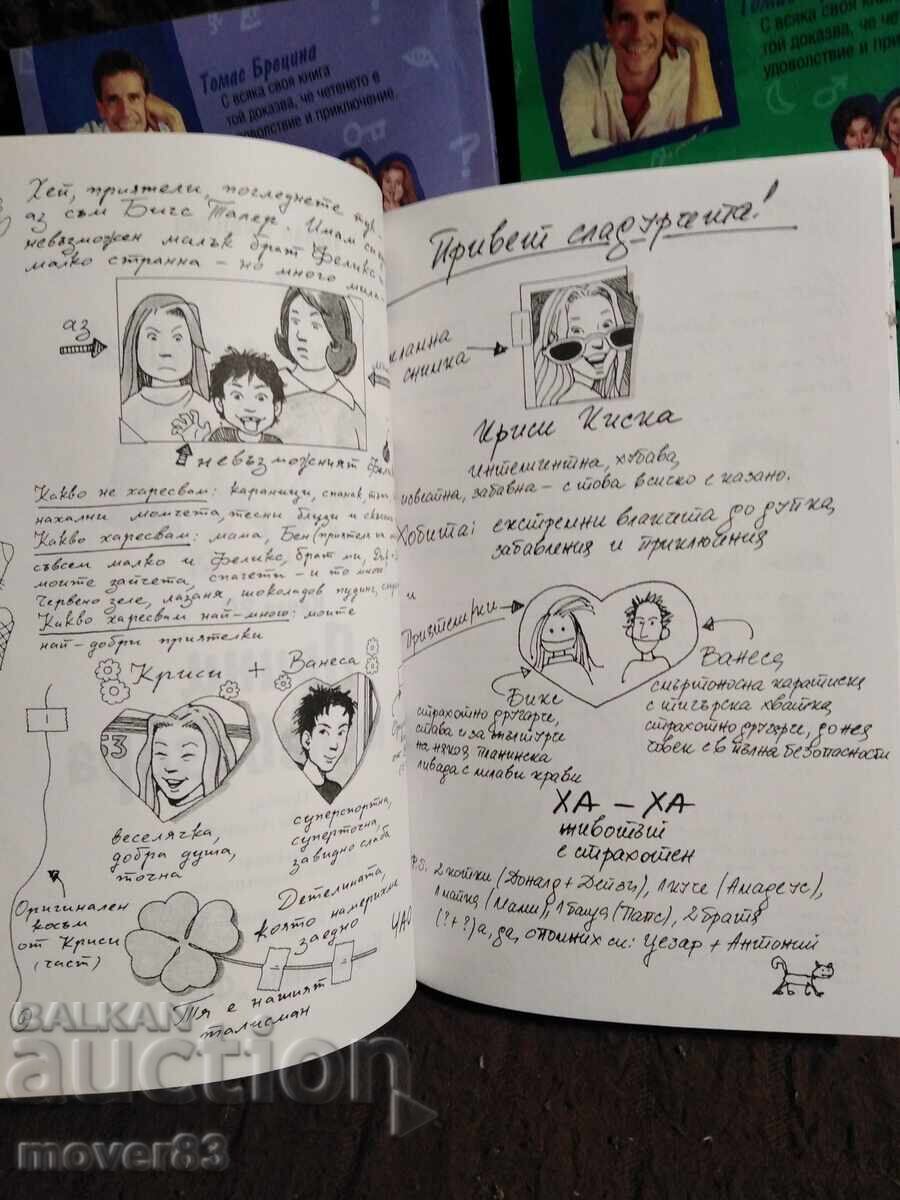 Томас Брецина
С всяка своя книга
той доказва, че четенето е
удоволствие и приключение.
Томас
С всяка своя
той доказва, че че
удоволствие и при
Хей, приятели, погледнете
аз съм Бикс Талер. Имам
невъзможен малък брат Феликс
малко странна – но много
аз
невъзможният
Какво не харесвам: караници, спанак,
нахални момчета, тесни блузи и
Какво харесвам: мама, Бен
съвсем малко и Феликс, брат ми,
моите зайчета, спагети – и то много
червено зеле, лазаня, шоколадов пудинг,
Какво харесвам най-много: моите
най-добри приятелки
Криси + Ванеса
веселячка,
добра душа,
точна
суперспортна,
суперточна,
завидно слаба
Оригинален
косъм
от Криси
(част)
Детелината,
която намерихме
заедно
ЧАО
Тя е нашият
талисман
Привет сладурчета!
снимка
Криси Киска
интелигентна, хубава,
забавна – с това всичко е казано.
Хобита: екстремни влакчета до дупка,
забавления и приключения
Приятелки
Бикс
страхотно другарче,
става и за
на някоя планинска
ливада с млави крави
Ванеса
смъртоносна каратистка
с тигърска хватка,
страхотно другарче, до нея
човек е в пълна безопасност
ХА – ХА
животът
е страхотен
P.S. 2 котки (Доналд + Дейзи), 1 куче (Амадеус),
1 майка (Мами), 1 баща (Папс), 2 братя
(?+?) а, да, спомних си: Цезар + Антоний
BALKAN
auction
mover83